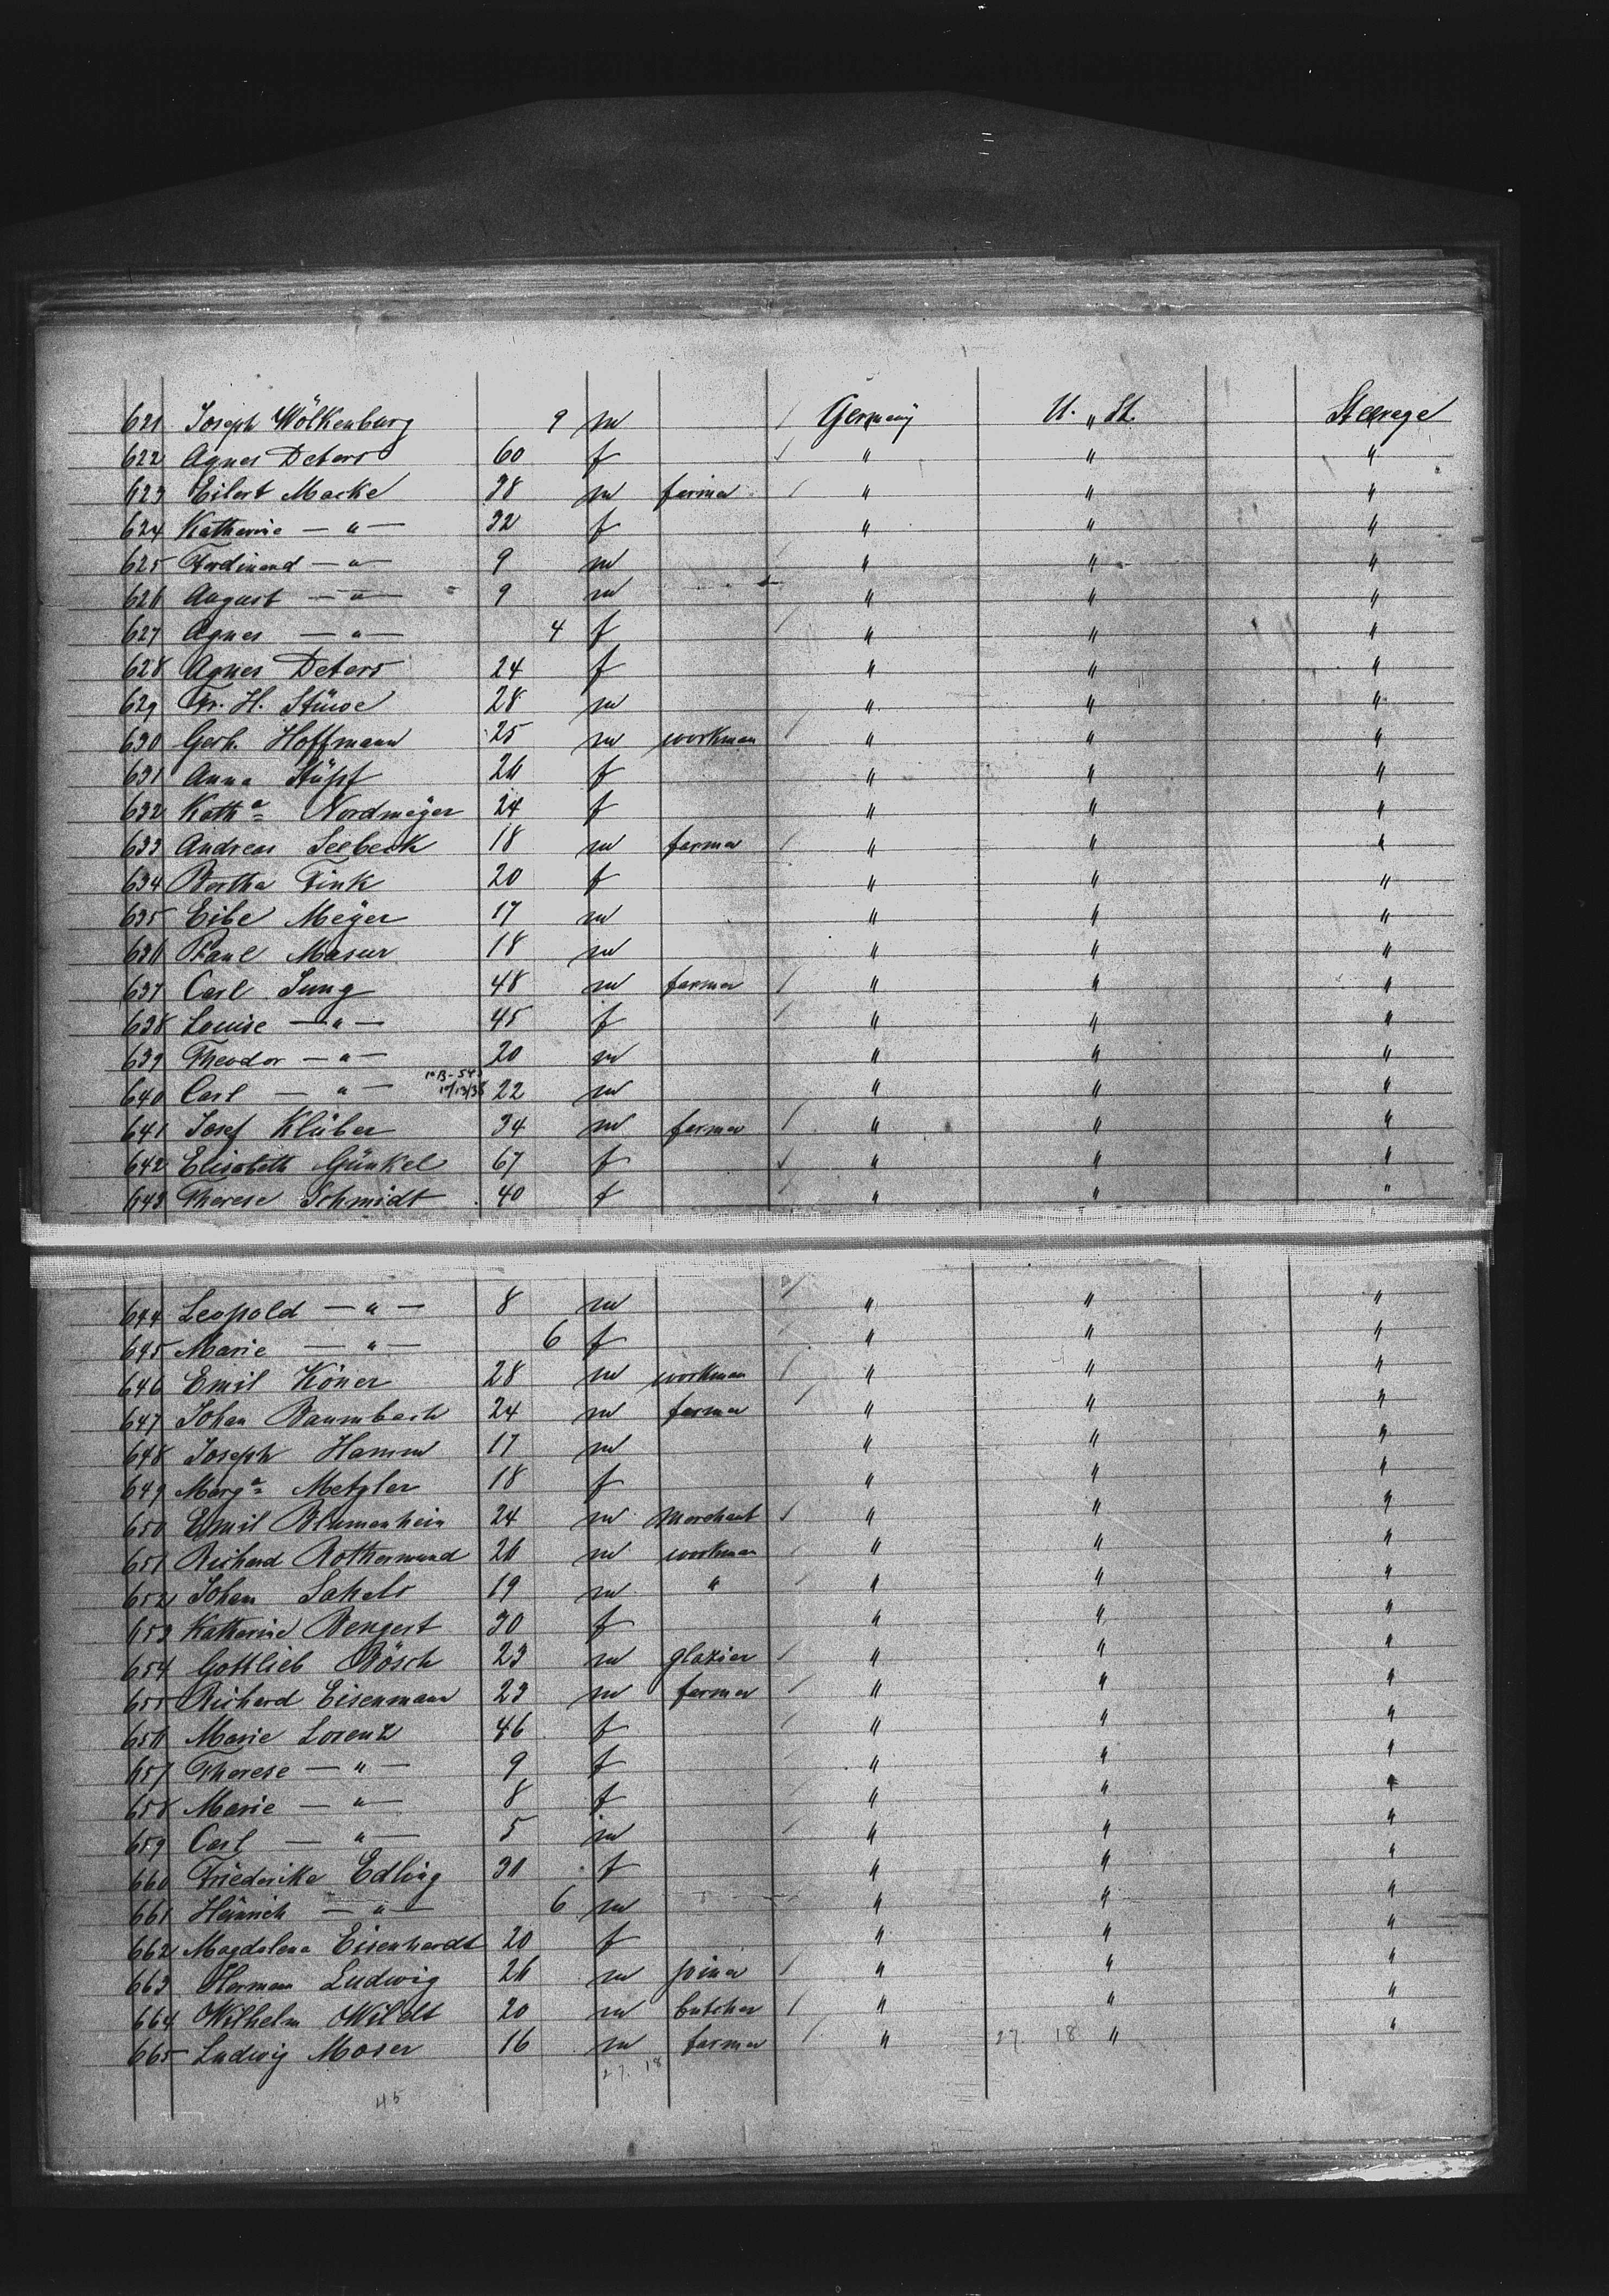 621 Joseph Wölkenburg 9 m Germany U. " St. Steerage
622 Agnes Deters 60 f " " "
623 Eilert Macke 38 m farmer " " "
624 Katharine — " — 32 f " " "
625 Ferdinand — " — 9 m " " "
626 August — " — 9 m " " "
627 Agnes — " — 4 f " " "
628 Agnes Deters 24 f " " "
629 Fr. H. Stüwe 28 m " " "
630 Gerh. Hoffmann 25 m workman " " "
631 Anna Stüpf 26 f " " "
632 Kath a Nordmeÿer 24 f " " "
633 Andreas Seebeck 18 m farmer " " "
634 Bertha Fink 20 f " " "
635 Eibe Meÿer 17 m " " "
636 Paul Masur 18 m " " "
637 Carl Jung 48 m farmer " " "
638 Louise — " — 45 f " " "
639 Theodor — " — 20 m " " "
640 Carl — " — 22 m " " "
641 Josef Klüber 34 m farmer " " "
642 Elisabeth Günkel 67 f " " "
643 Therese Schmidt 40 f " " "
644 Leopold — " — 8 m " " "
645 Marie — " — 6 f " " "
646 Emil Köner 28 m workman " " "
647 Johan Baumbach 24 m farmer " " "
648 Joseph Hamm 17 m " " "
649 Marg a Metzler 18 f " " "
650 Emil Blumenhein 24 m merchant " " "
651 Richard Rothermund 26 m workman " " "
652 Johan Sakels 19 m " " " "
653 Katharine Bengert 30 f " " "
654 Gottlieb Bösch 23 m glazier " " "
655 Richard Eisenmann 23 m farmer " " "
656 Marie Lorenz 46 f " " "
657 Therese — " — 9 f " " "
658 Marie — " — 8 f " " "
659 Carl — " — 5 m " " "
660 Friederike Edling 30 f " " "
661 Heinrich — " — 6 m " " "
662 Magdalena Eisenhardt 20 f " " "
663 Herman Ludwig 26 m joiner " " "
664 Wilhelm Wildt 20 m butcher " " "
665 Ludwig Moser 16 m farmer " 27. 18 " "
27. 18
45